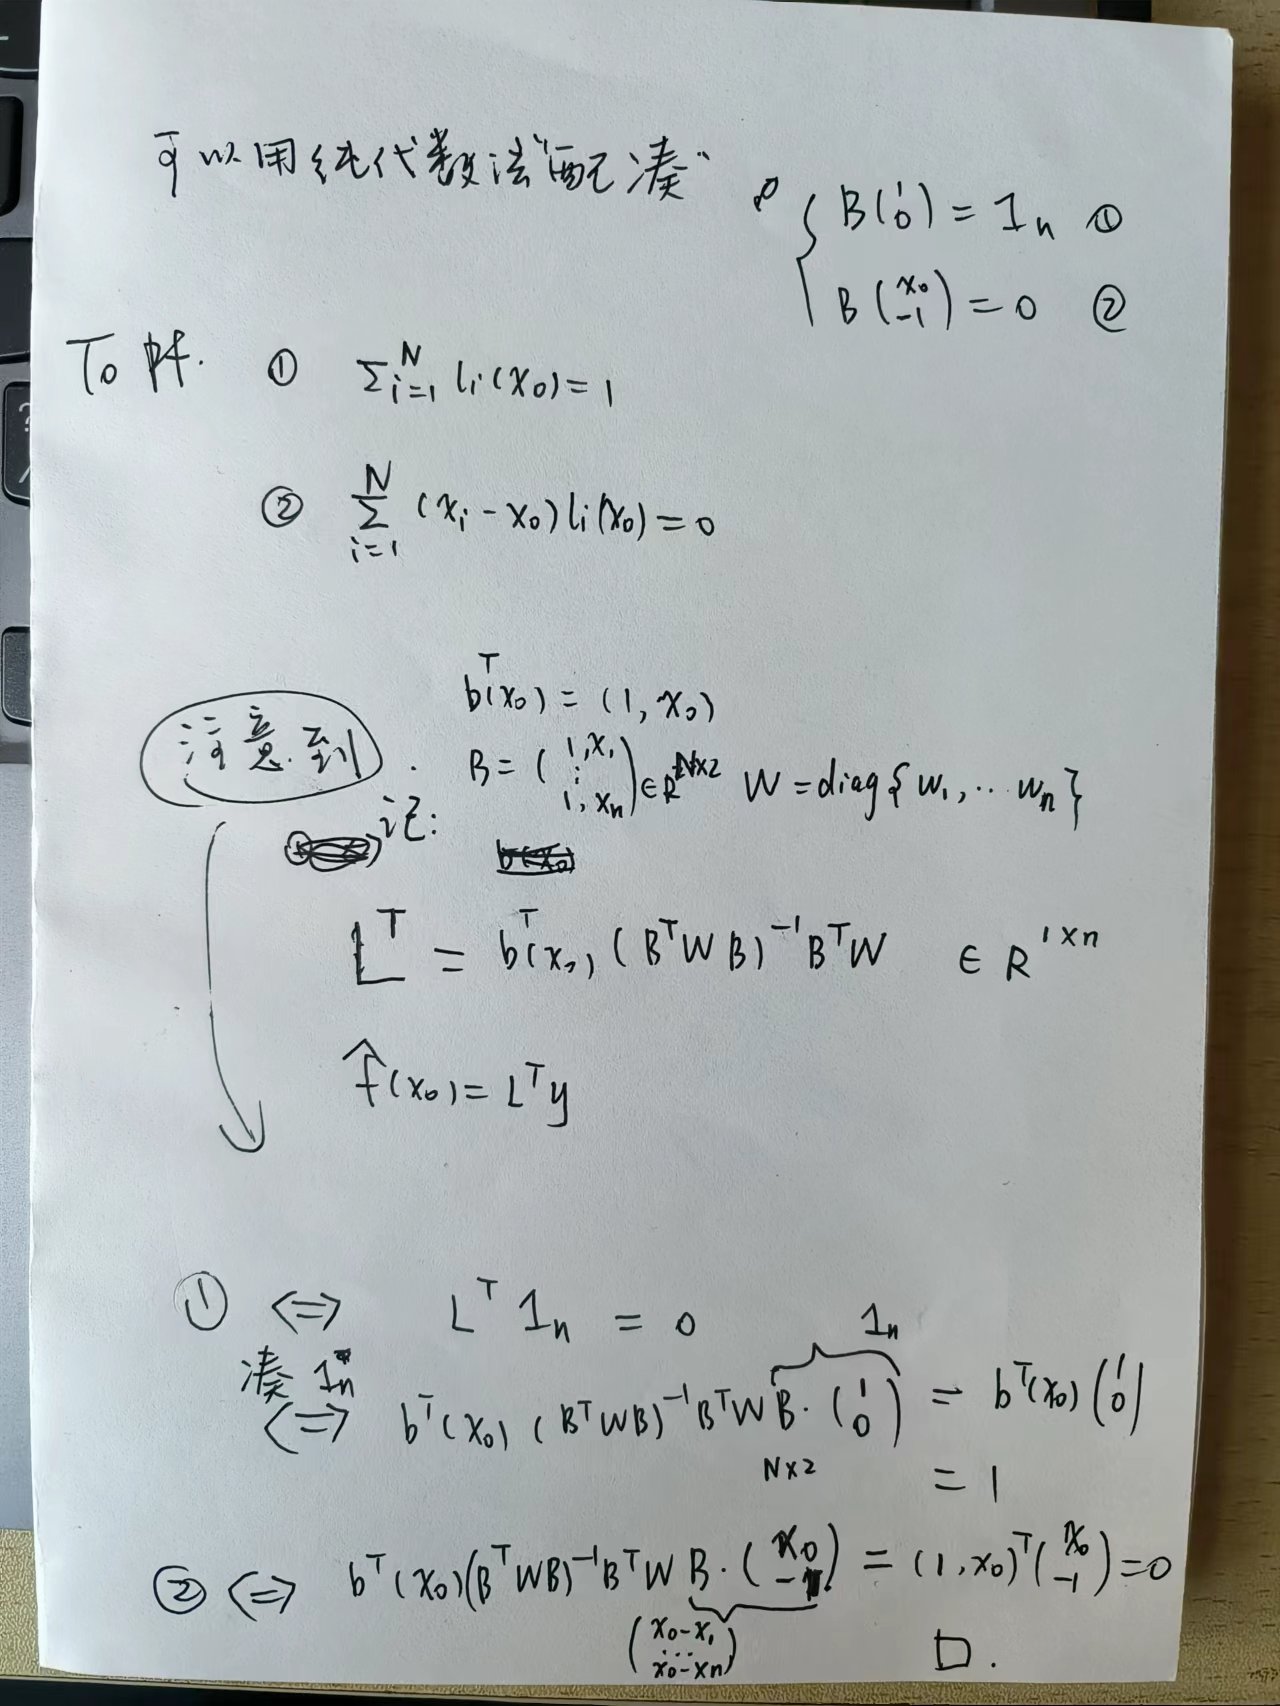 可以用纯代数法“配凑”
{ B(1 0) = 1n ①
B(x0 -1) = 0 ②
To 时. ① Σ_{i=1}^N li(x0) = 1
② Σ_{i=1}^N (xi - x0) li(x0) = 0
注意到.
b^T(x0) = (1, x0)
B = (1, x1 ⋮ 1, xn) ∈ R^{N×2} W = diag{w1, ... wn}
记:
L^T = b^T(x0) (B^T W B)^{-1} B^T W ∈ R^{1×n}
f̂(x0) = L^T y
① <=> L^T 1n = 0
凑 1n
1n
<=> b^T(x0) (B^T W B)^{-1} B^T W B · (1 0) = b^T(x0) (1 0)
N×2
= 1
② <=> b^T(x0) (B^T W B)^{-1} B^T W B · (x0 -1) = (1, x0)^T (x0 -1) = 0
(x0 - x1 ... x0 - xn)
□.